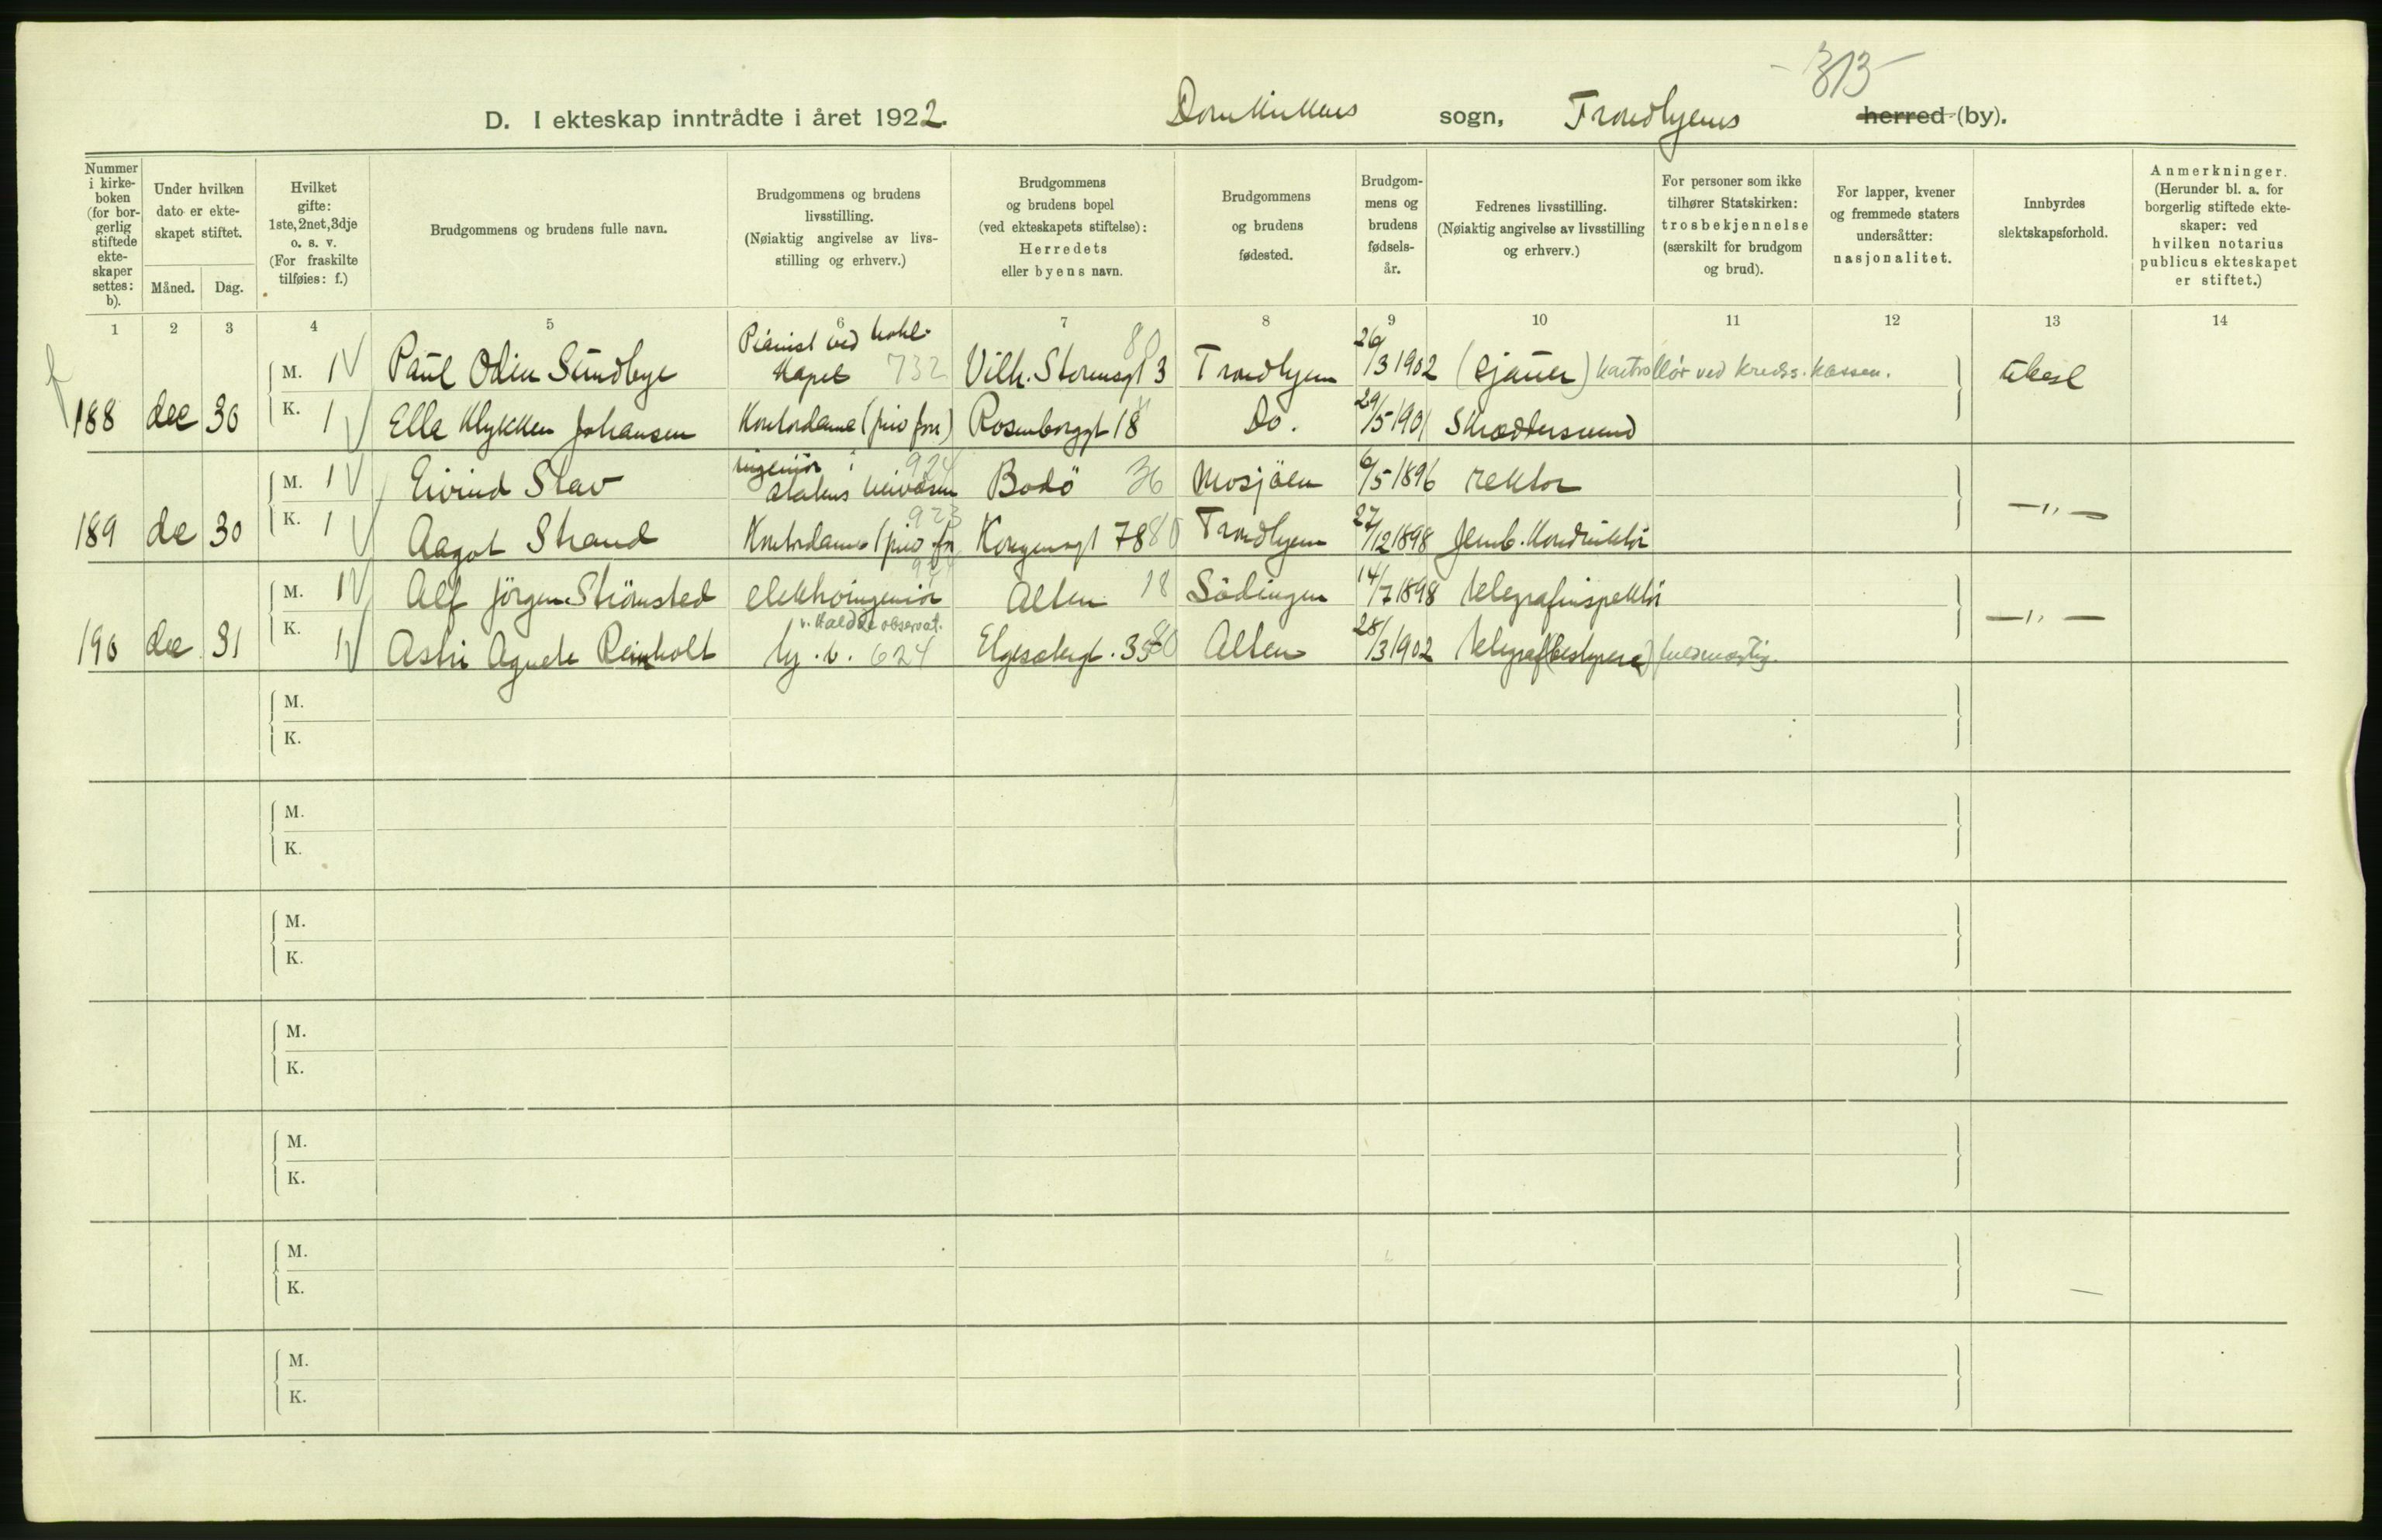 - 313 -
D. I ekteskap inntrådte i året 1922. Domkirkens sogn, Trondhjems herred (by).
Nummer i kirkeboken (for borgerlig stiftede ekteskaper settes: b).
Under hvilken dato er ekteskapet stiftet.
Måned. Dag.
Hvilket gifte: 1ste, 2net, 3dje o. s. v. (For fraskilte tilføies: f.)
Brudgommens og brudens fulle navn.
Brudgommens og brudens livsstilling. (Nøiaktig angivelse av livsstilling og erhverv.)
Brudgommens og brudens bopel (ved ekteskapets stiftelse): Herredets eller byens navn.
Brudgommens og brudens fødested.
Brudgommens og brudens fødselsår.
Fedrenes livsstilling. (Nøiaktig angivelse av livsstilling og erhverv.)
For personer som ikke tilhører Statskirken: trosbekjennelse (særskilt for brudgom og brud).
For lapper, kvener og fremmede staters undersåtter: nasjonalitet.
Innbyrdes slektskapsforhold.
Anmerkninger. (Herunder bl. a. for borgerlig stiftede ekteskaper: ved hvilken notarius publicus ekteskapet er stiftet.)
1 2 3 4 5 6 7 8 9 10 11 12 13 14
188 dec 30 M. 1 Paul Odin Sundbye Pianist ved kapel 732 Vilh. Stormsgt 3 80 Trondhjem 26/3 1902 (Sjauer) kontrollør ved kredss.kassen. ubesl
K. 1 Ella Klykken Johansen Kontordame (priv forr) Rosenborggt 18 Do. 29/5 1901 Skræddersvend
189 de 30 M. 1 Eivind Stav ingeniör i statens veivæsen 924 Bodö 36 Mosjöen 6/5 1896 rektor —„—
K. 1 Aagot Strand Kontordame (priv for 923 Kongensgt 78 80 Trondhjem 27/12 1898 Jernb. Konduktör
190 dec 31 M. 1 Alf Jörgen Strömsted elektroingeniör v. Haldde observat. Alten 18 Lödingen 14/7 1898 telegrafinspektör —„—
K. 1 Astri Agnete Reinholt hj. v. 624 Elgesetergt. 35 80 Alten 28/3 1902 telegraf(bestyrer) fuldmægtig.
M.
K.
M.
K.
M.
K.
M.
K.
M.
K.
M.
K.
M.
K.